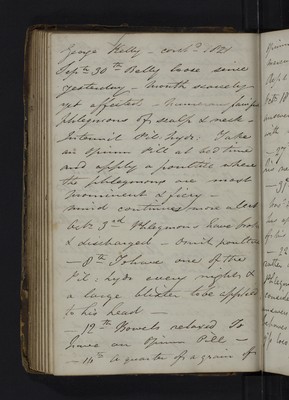 George Kelly – contd 1821
Sepr 30th Belly loose since
yesterday – Mouth scarcely
yet affected – numerous
phlegmons of scalp & neck –
Intermit Pil: Hydr: Take
an Opium Pill at bed time
and apply a poultice where
the phlegmons are most
prominent & fiery –
mind continues more alert
Octr 3rd Phlegmons have broke
& discharged – Omit poultice
– 8th To have one of the
Pil: Hydr every night &
a large blister to be applied
to his head –
– 12th Bowels relaxed To
have an Opium Pill –
– 14th A quarter of a grain of